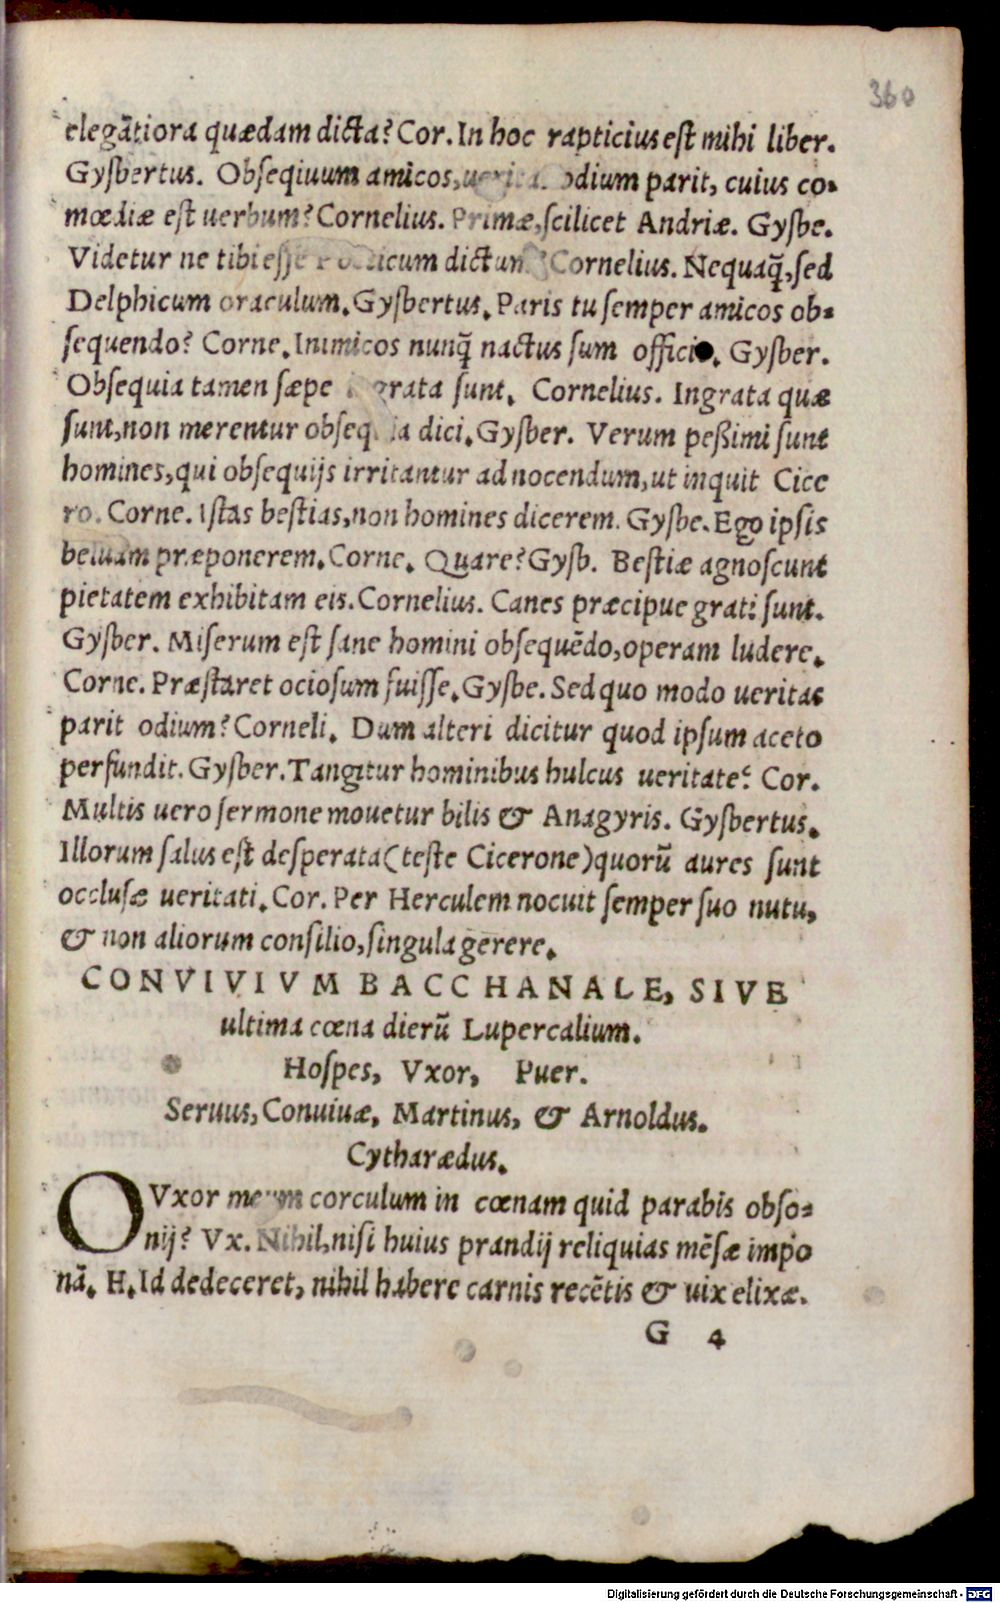 360
elegãtiora quædam dicta? Cor. In hoc rapticius est mihi liber.
Gysbertus. Obsequium amicos, odium parit, cuius co-
mœdiæ est uerbum? Cornelius. Primæ, scilicet Andriæ. Gysbe.
Videtur ne tibi esse dictum? Cornelius. Nequaq̃, sed
Delphicum oraculum. Gysbertus. Paris tu semper amicos ob-
sequendo? Corne. Inimicos nunq̃ nactus sum officio. Gysber.
Obsequia tamen sæpe ingrata sunt. Cornelius. Ingrata quæ
sunt, non merentur obsequia dici. Gysber. Verum peßimi sunt
homines, qui obsequijs irritantur ad nocendum, ut inquit Cice
ro. Corne. Istas bestias, non homines dicerem. Gysbe. Ego ipsis
beluam præponerem. Corne. Quare? Gysb. Bestiæ agnoscunt
pietatem exhibitam eis. Cornelius. Canes præcipue grati sunt.
Gysber. Miserum est sane homini obsequẽdo, operam ludere.
Corne. Præstaret ociosum fuisse. Gysbe. Sed quo modo ueritas
parit odium? Corneli. Dum alteri dicitur quod ipsum aceto
perfundit. Gysber. Tangitur hominibus hulcus ueritate? Cor.
Multis uero sermone mouetur bilis & Anagyris. Gysbertus.
Illorum salus est desperata (teste Cicerone) quorũ aures sunt
occlusæ ueritati. Cor. Per Herculem nocuit semper suo nutu,
& non aliorum consilio, singula gerere.
CONVIVIVM BACCHANALE, SIVE
ultima cœna dierũ Lupercalium.
Hospes, Vxor, Puer.
Seruus, Conuiuæ, Martinus, & Arnoldus.
Cytharædus.
O Vxor meum corculum in cœnam quid parabis obso-
nij? Vx. Nihil, nisi huius prandij reliquias mẽsæ impo
nã. H. Id dedeceret, nihil habere carnis recẽtis & uix elixæ.
G 4
Digitalisierung gefördert durch die Deutsche Forschungsgemeinschaft - DFG